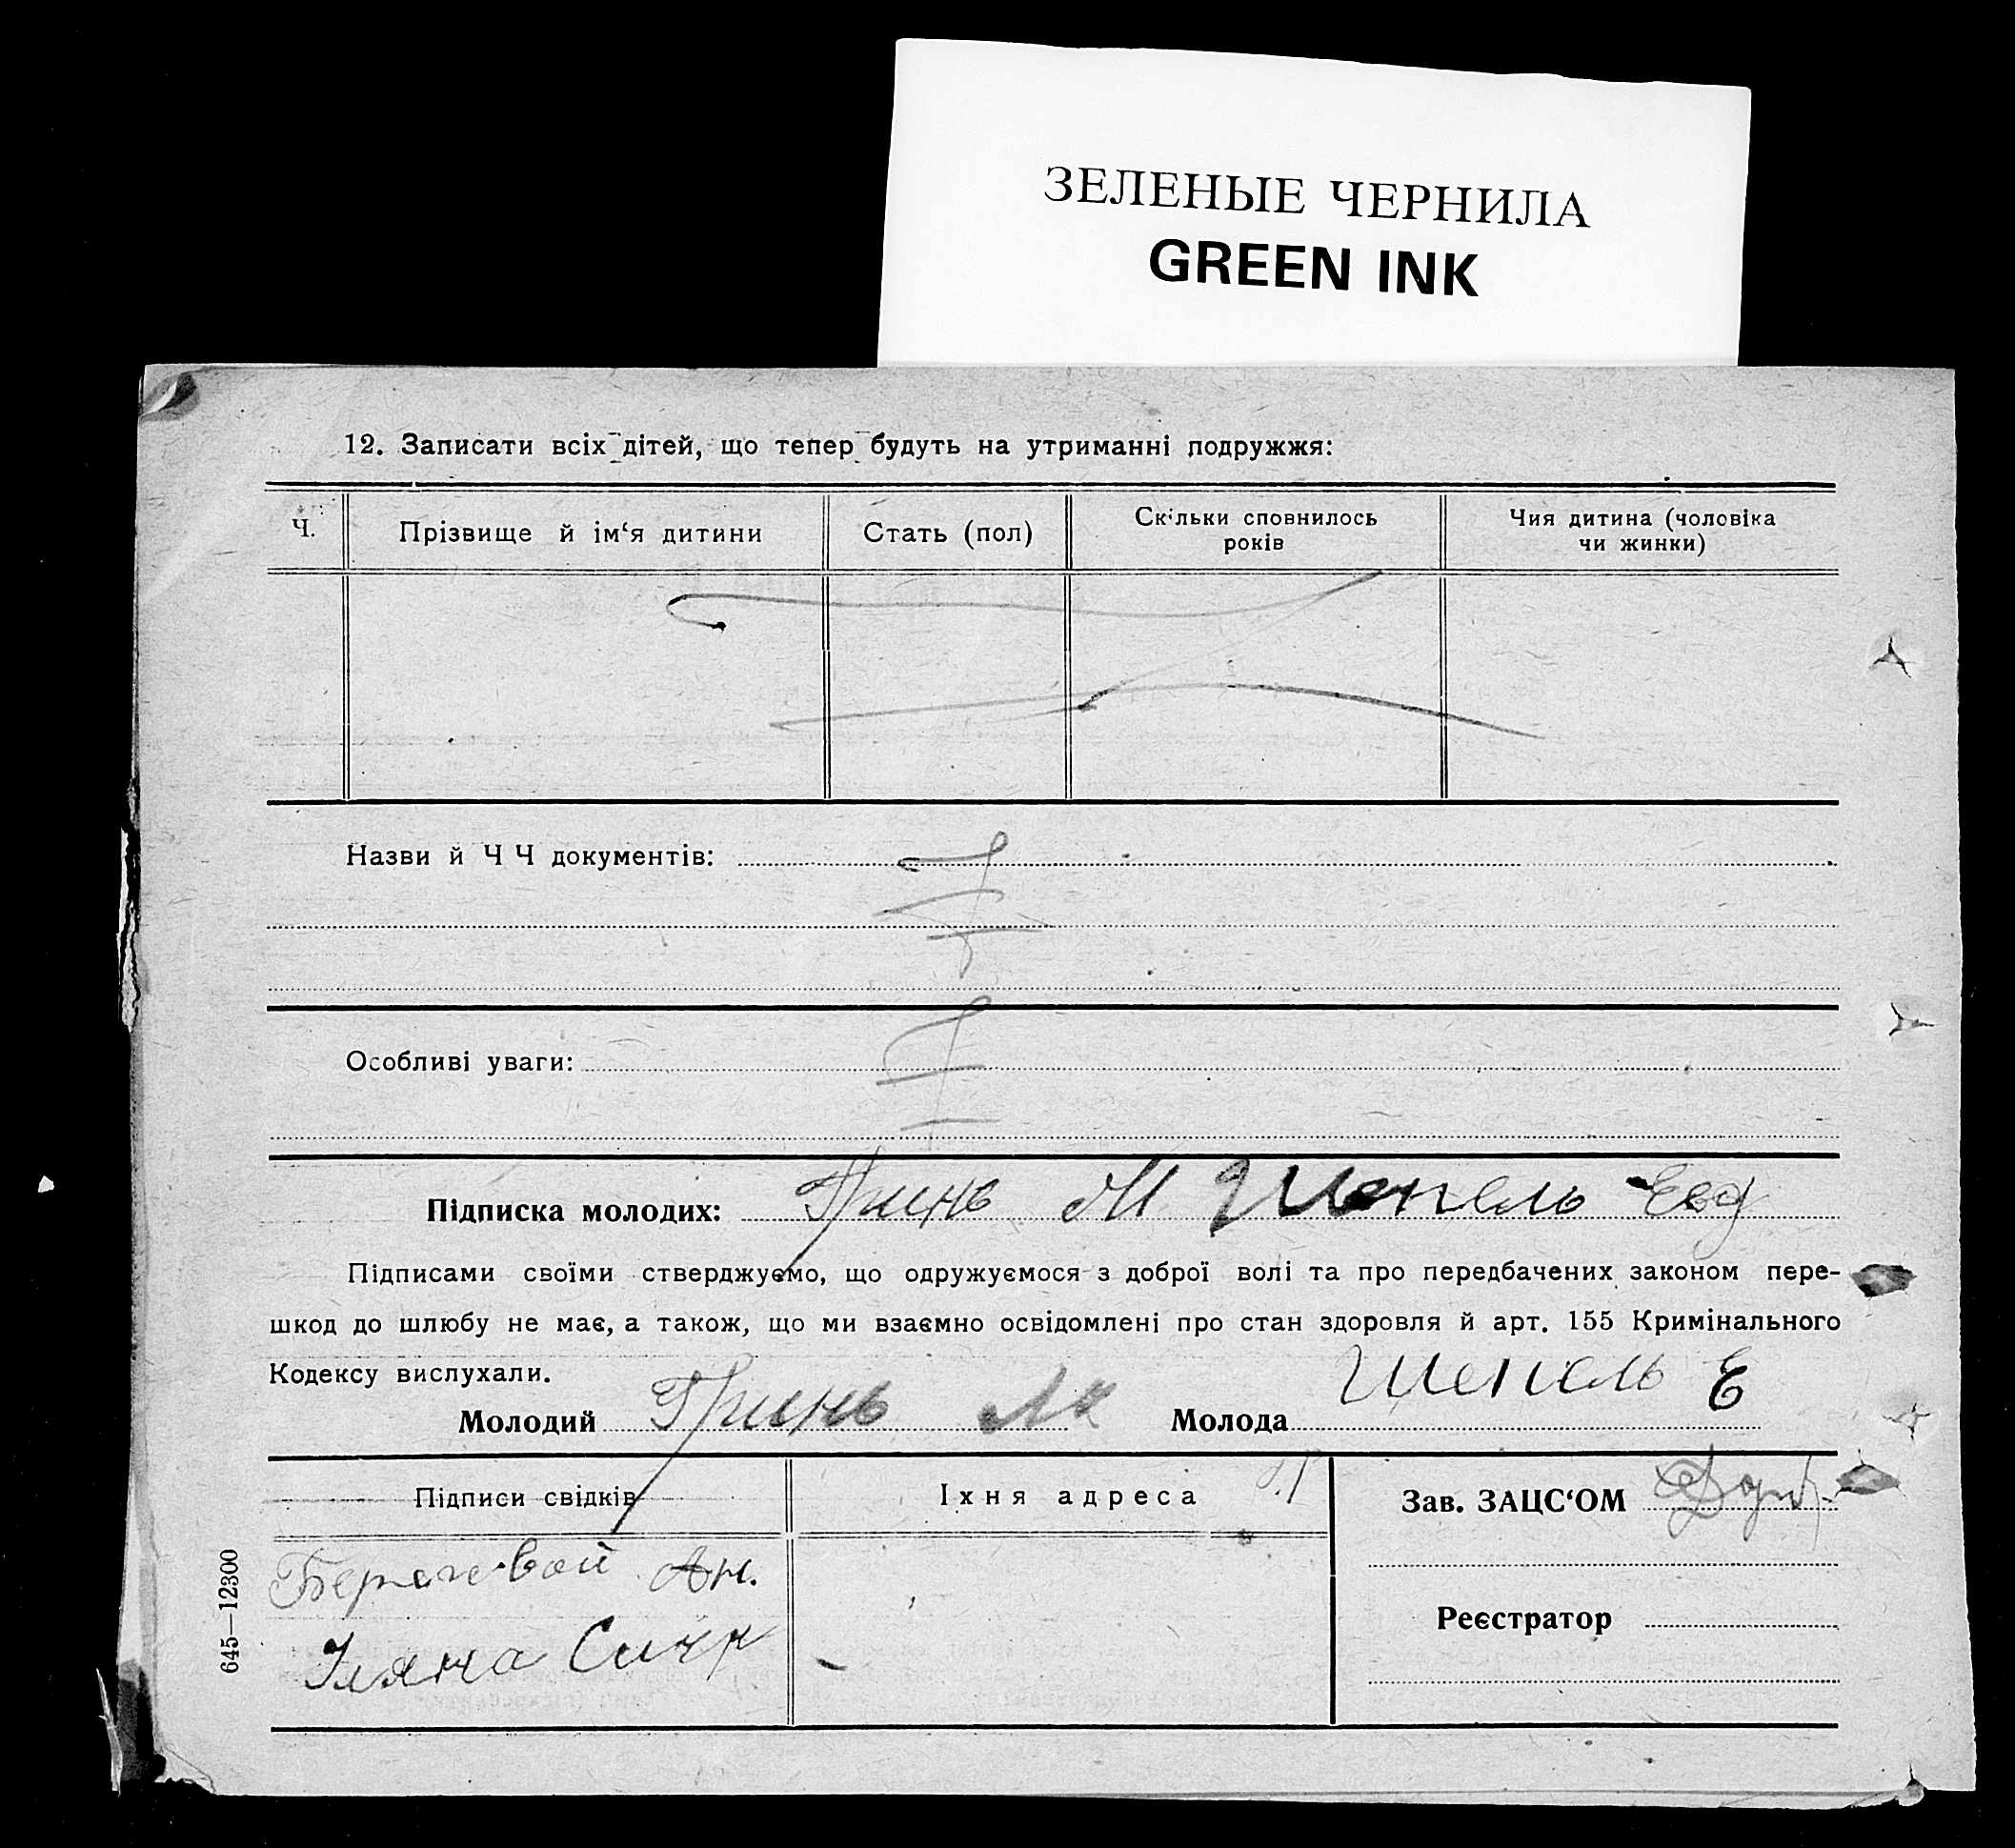 ЗЕЛЕНЫЕ ЧЕРНИЛА
GREEN INK
12. Записати всіх дітей, що тепер будуть на утриманні подружжя:
Ч. Прізвище й ім‘я дитини Стать (пол) Скільки сповнилось років Чия дитина (чоловіка чи жинки)
Назви й Ч Ч документів:
Особливі уваги:
Підписка молодих: Гринь М Шепель Евд
Підписами своїми стверджуємо, що одружуємося з доброї волі та про передбачених законом пере-
шкод до шлюбу не має, а також, що ми взаємно освідомлені про стан здоровля й арт. 155 Кримінального
Кодексу вислухали.
Молодий Гринь М Молода Шепель Е
Підписи свідків Їхня адреса Зав. ЗАЦС‘ОМ
Ан.
Реєстратор
Уляна
645—12300